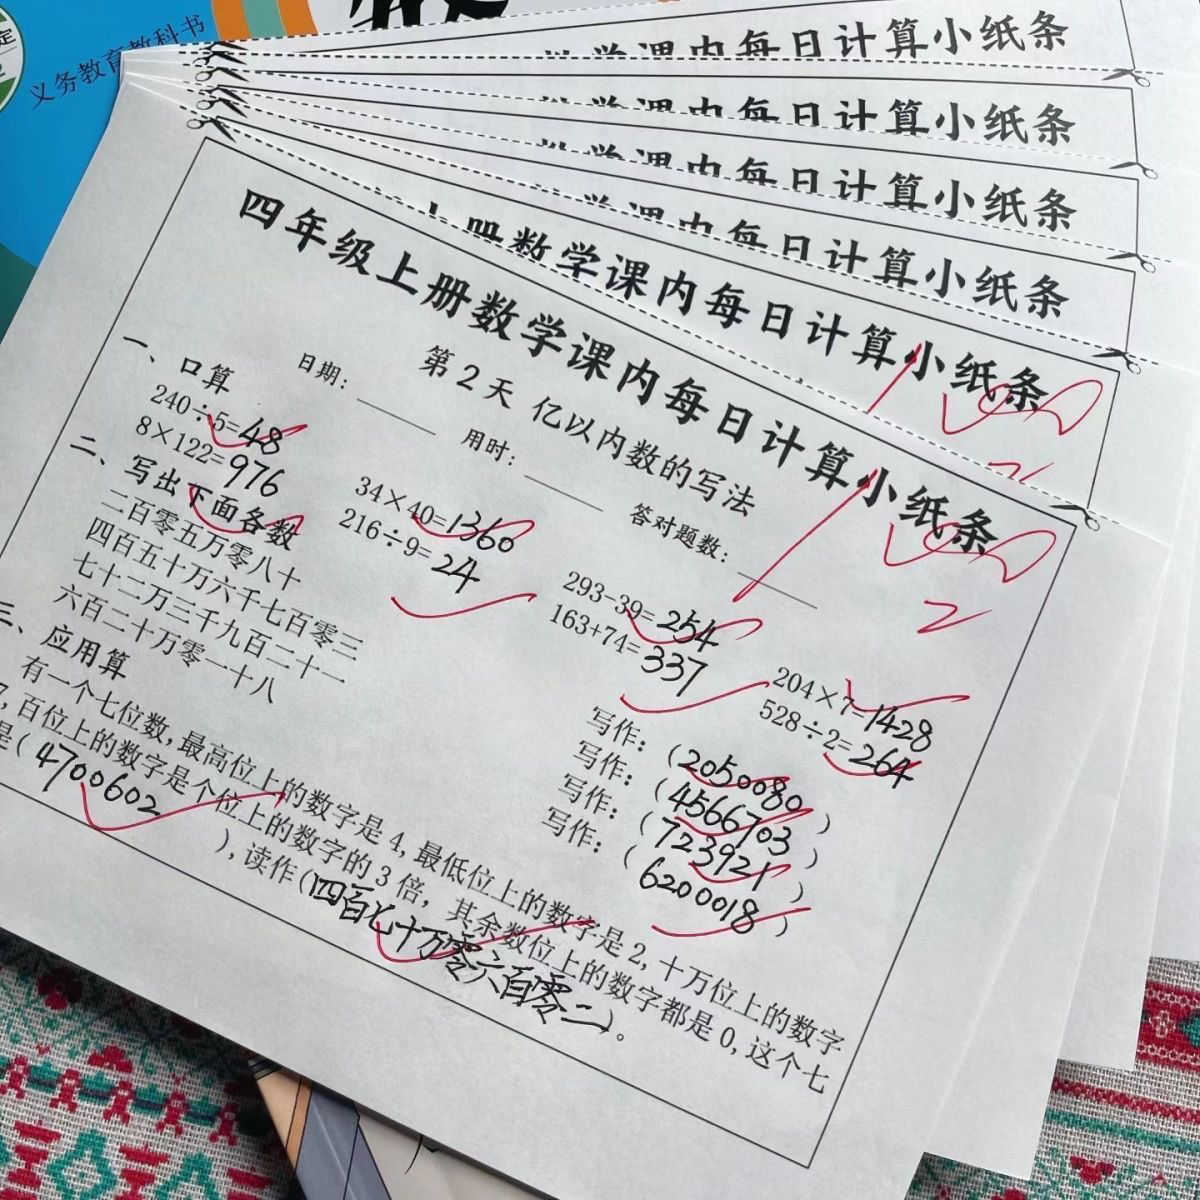 义务教育教科书
数学课内每日计算小纸条
数学课内每日计算小纸条
数学课内每日计算小纸条
数学课内每日计算小纸条
上册数学课内每日计算小纸条
四年级上册数学课内每日计算小纸条
第2天 亿以内数的写法
日期: 用时: 答对题数:
一、口算
240÷5=48 34×40=1360 293-39=254 204×7=1428
8×122=976 216÷9=24 163+74=337 528÷2=264
二、写出下面各数
二百零五万零八十 写作:(2050080)
四百五十万六千七百零三 写作:(4566703)
七十二万三千九百二十一 写作:(723921)
六百二十万零一十八 写作:(6200018)
三、应用算
有一个七位数,最高位上的数字是4,最低位上的数字是2,十万位上的数字
7,百位上的数字是个位上的数字的3倍,其余数位上的数字都是0,这个七
是(4700602),读作(四百七十万零六百零二)。
2